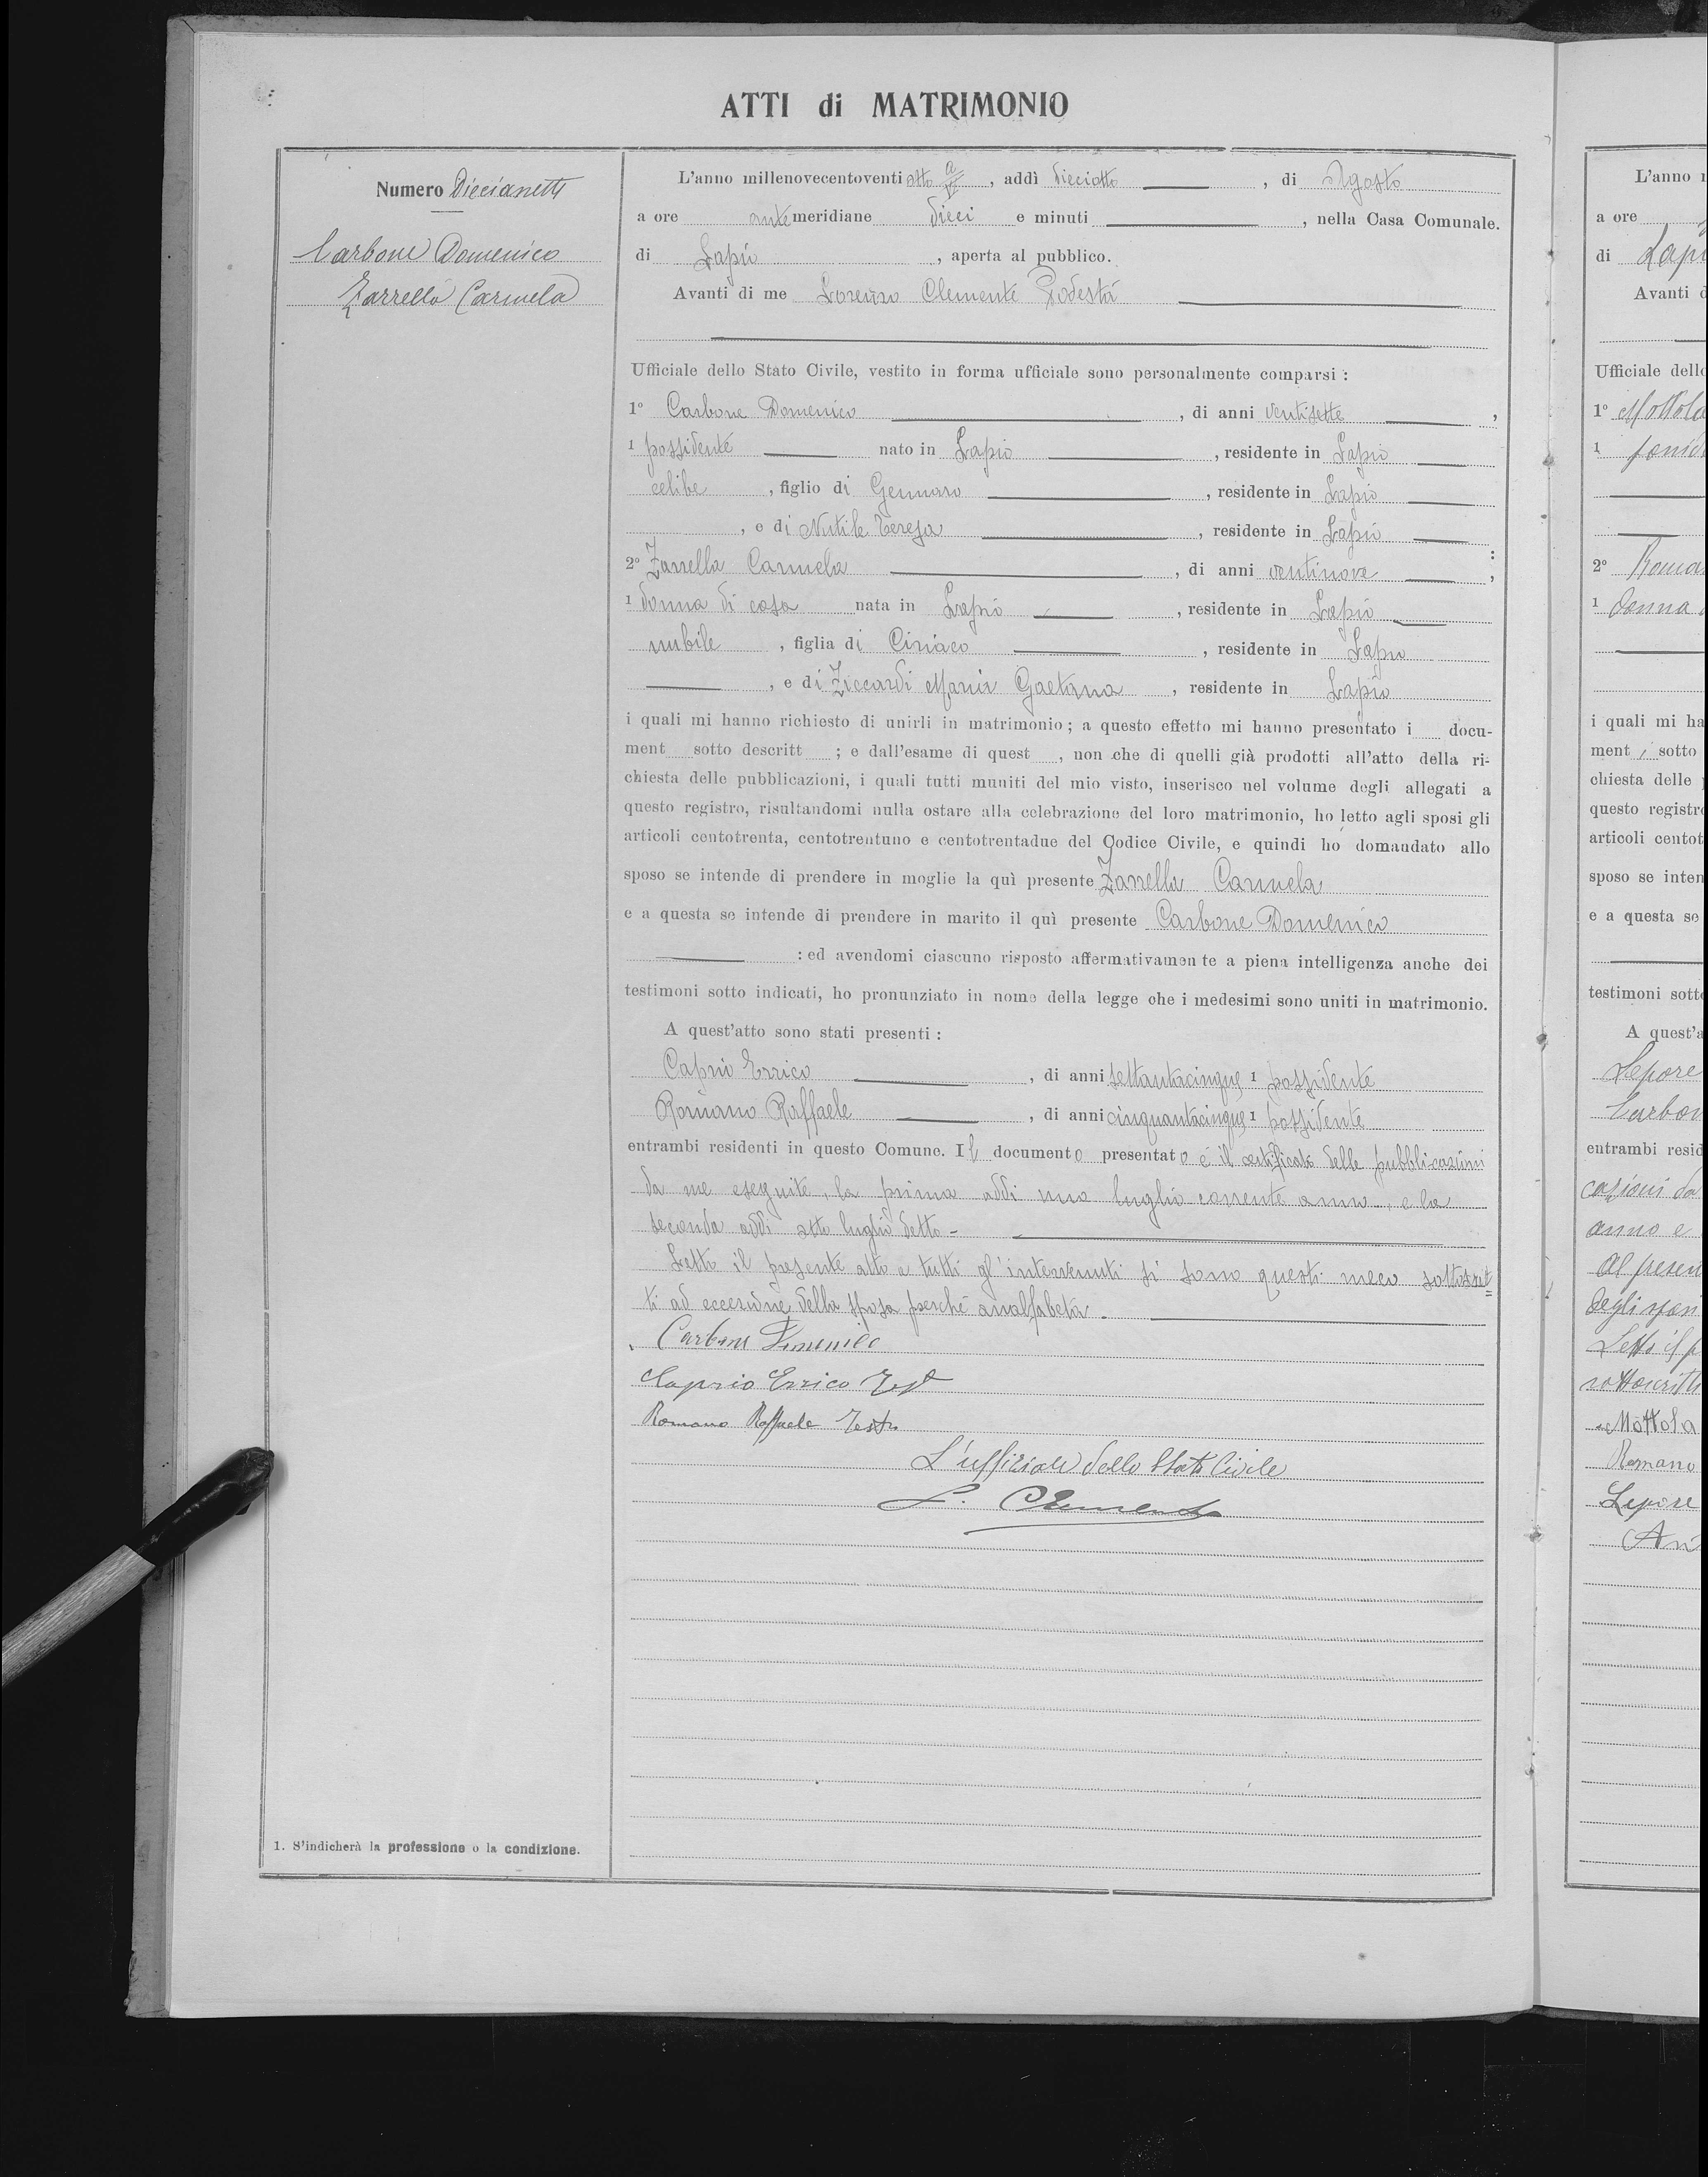 ATTI di MATRIMONIO
Numero Diecianette
Carbone Domenico
Zarrella Carmela
L'anno millenovecentoventi otto, addì dieciotto, di Agosto
a ore antemeridiane dieci e minuti, nella Casa Comunale.
di Lapio, aperta al pubblico.
Avanti di me Lorenzo Clemente Podestà
Ufficiale dello Stato Civile, vestito in forma ufficiale sono personalmente comparsi :
1º Carbone Domenico, di anni ventisette,
1 possidente nato in Lapio, residente in Lapio
celibe, figlio di Gennaro, residente in Lapio
, e di Nutile Teresa, residente in Lapio :
2º Zarrella Carmela, di anni ventinove ,
1 donna di casa nata in Lapio, residente in Lapio
nubile, figlia di Ciriaco, residente in Lapio
, e di Ziccardi Maria Gaetana, residente in Lapio
i quali mi hanno richiesto di unirli in matrimonio ; a questo effetto mi hanno presentato i docu-
ment sotto descritt ; e dall'esame di quest , non che di quelli già prodotti all'atto della ri-
chiesta delle pubblicazioni, i quali tutti muniti del mio visto, inserisco nel volume degli allegati a
questo registro, risultandomi nulla ostare alla celebrazione del loro matrimonio, ho letto agli sposi gli
articoli centotrenta, centotrentuno e centotrentadue del Codice Civile, e quindi ho domandato allo
sposo se intende di prendere in moglie la quì presente Zarrella Carmela
e a questa se intende di prendere in marito il quì presente Carbone Domenico
: ed avendomi ciascuno risposto affermativamente a piena intelligenza anche dei
testimoni sotto indicati, ho pronunziato in nome della legge che i medesimi sono uniti in matrimonio.
A quest'atto sono stati presenti :
Caprio Errico, di anni settantacinque 1 possidente
Romano Raffaele, di anni cinquantacinque 1 possidente
entrambi residenti in questo Comune. Il documento presentato è il certificato delle pubblicazioni
da me eseguite, la prima addi uno luglio corrente anno, e la
seconda addi otto luglio detto -
Letto il presente atto a tutti gl'intervenuti si sono questi meco sottoscrit=
ti ad eccezione della sposa perché analfabeta.
Carbone Domenico
Caprio Errico Test
Romano Raffaele Test.
L'uffiziale dello Stato Civile
L. Clemente
1. S'indicherà la professione o la condizione.
L'anno
a ore
di Lapi
Avanti d
Ufficiale dello
1º Mottola
1
2º Roma
1 donna
i quali mi ha
ment i sotto
chiesta delle
questo registro
articoli centot
sposo se inten
e a questa se
testimoni sotto
A quest'a
Lepore
Carbon
entrambi resid
cazioni da
anno e
al presen
degli spos
Letto il p
sottoscritt
Mottola
Romano
Lepore